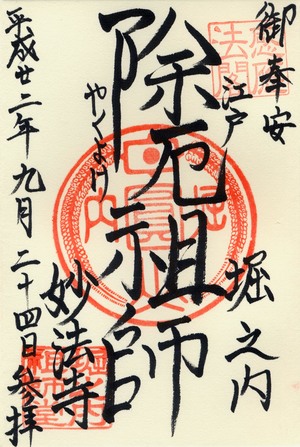 御奉安
江戸
堀之内
除厄祖師
やくよけ
妙法寺
平成廿二年九月二十四日参拝